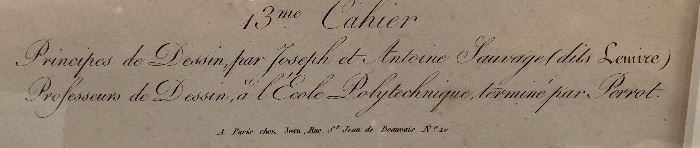 13.me Cahier
Principes de Dessin, par Joseph et Antoine Sauvage (dits Lemire)
Professeurs de Dessin, à l'École Polytechnique, terminé par Perrot.
A Paris chez Jean, Rue St. Jean de Beauvais N.o 10